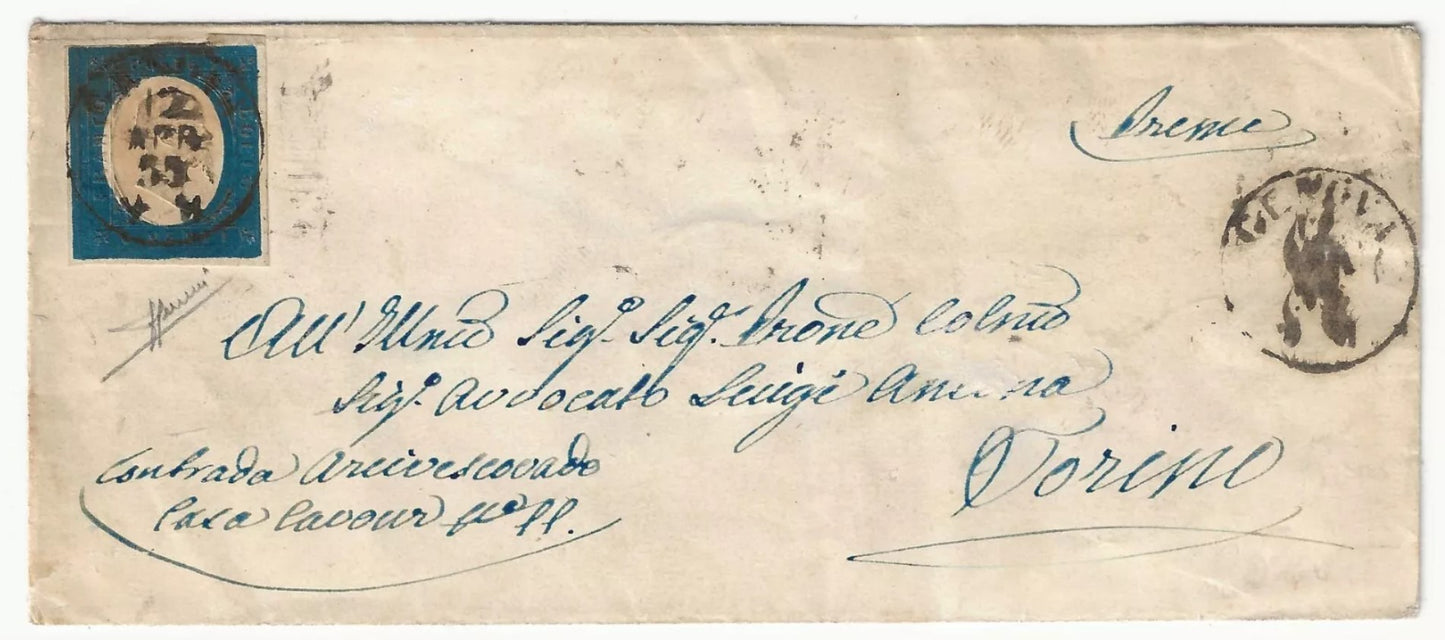 12
APR
55
Preme
GENOVA
All' Illmo Sigr. Sigr. Prone Colmo
Sigr. Avvocato Luigi
Torino
Contrada Arcivescovado
Casa Cavour No 11.